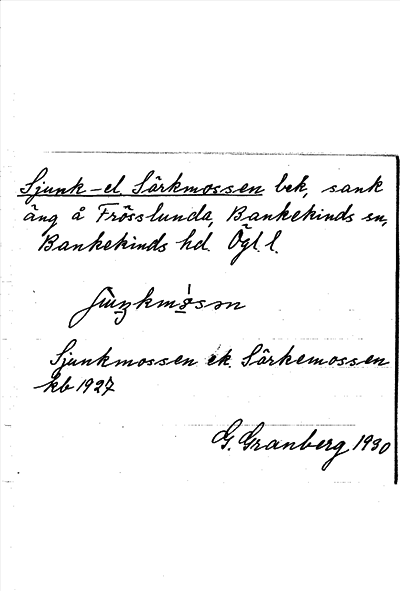 Sjunk- el. Särkmossen bek., sank
äng å Frösslunda, Bankekinds sn,
Bankekinds hd. Ögl. l.
Sjunkmossen ek. Särkemossen
kb 1927
G. Granberg 1930